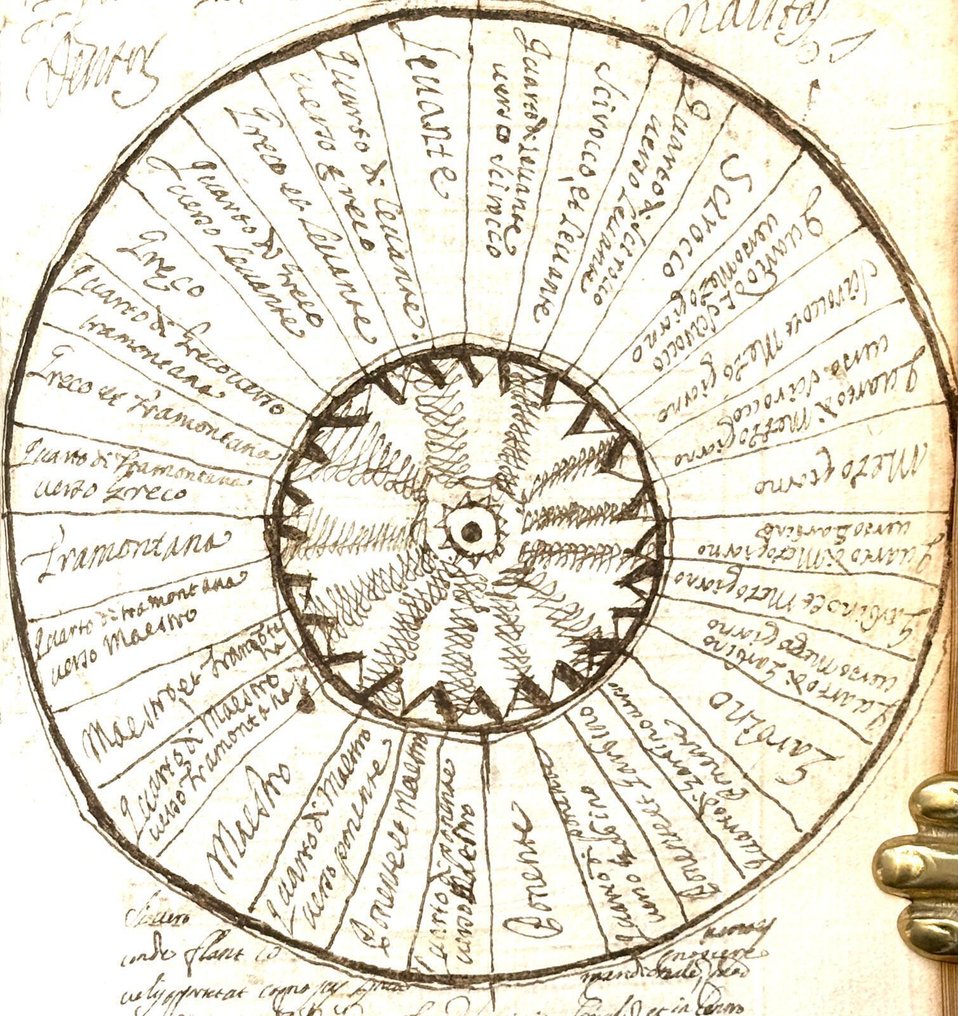 Levante
Quarto di levante
verso scirocco
Scirocco, et Levante
Quarto di scirocco
verso Levante
Scirocco
Quarto di scirocco
verso Mezo giorno
Scirocco et Mezo giorno
Quarto di Mezzo giorno
verso scirocco
Mezo giorno
Quarto di Mezo giorno
verso Garbino
Garbino et Mezo giorno
Quarto di Garbino
verso Mezzo giorno
Garbino
Quarto di Garbino verso
Ponente
Ponente et Garbino
Quarto di ponente
verso Garbino
Ponente
Quarto di ponente
verso Maestro
Ponente et Maestro
Quarto di Maestro
verso ponente
Maestro
Quarto di Maestro
verso Tramontana
Maestro et Tramontana
Quarto di tramontana
verso Maestro
Tramontana
Quarto di Tramontana
verso Greco
Greco et Tramontana
Quarto di Greco verso
tramontana
Greco
Quarto di Greco
verso Levante
Greco et Levante
Quarto di Levante
verso Greco